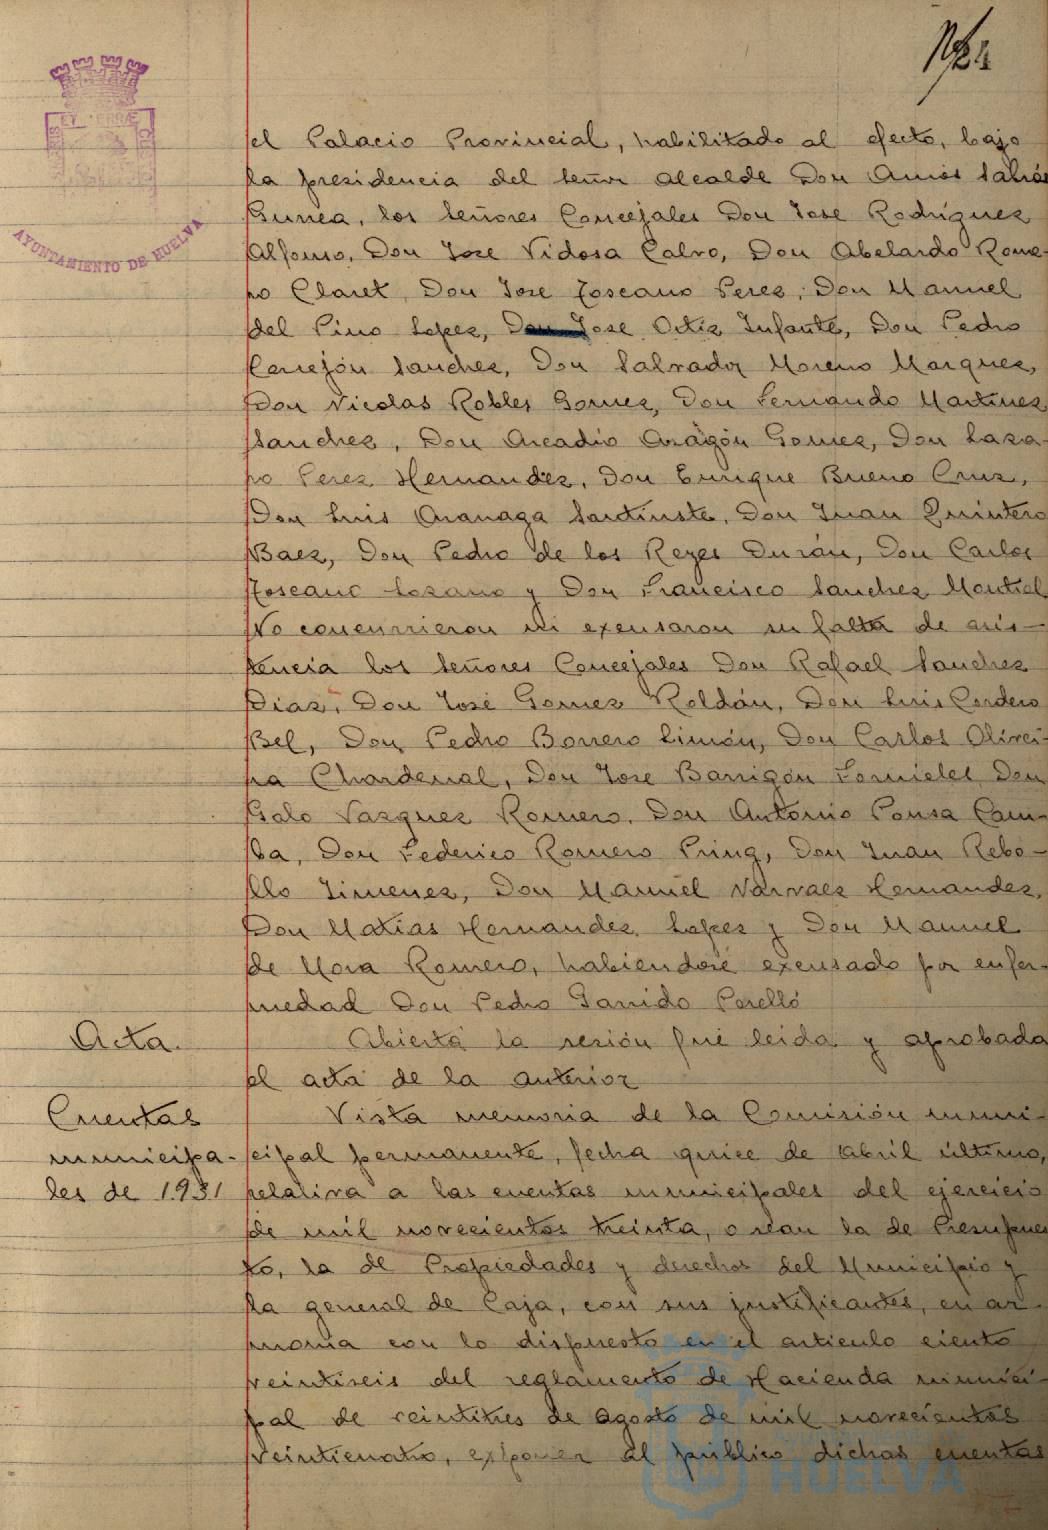 el Palacio Provincial, habilitado al efecto, bajo
la presidencia del señor alcalde Don Amós Sabrás
Gurrea, los señores Concejales Don Jose Rodríguez
Alfonso, Don Jose Vidosa Calvo, Don Abelardo Rome-
ro Claret, Don Jose Toscano Perez, Don Manuel
del Pino Lopez, Don Jose Ortiz Infante, Don Pedro
Cerrejón Sanchez, Don Salvador Moreno Marquez,
Don Nicolas Robles Gomez, Don Fernando Martinez
Sanchez, Don Arcadio Aragón Gomez, Don Laza-
ro Perez Hernandez, Don Enrique Bueno Cruz,
Don Luis Aranaga Don Juan Quintero
Baez, Don Pedro de los Reyes Durán, Don Carlos
Toscano Lozano y Don Francisco Sanchez Montiel
No concurrieron ni excusaron su falta de asis-
tencia los señores Concejales Don Rafael Sanchez
Diaz, Don José Gomez Roldán, Don Luis Cordero
Bel, Don Pedro Borrero Limón, Don Carlos Olivei-
ra Chardenal, Don Jose Barrigón Fornieles Don
Galo Vazquez Romero, Don Antonio Pousa Cam-
ba, Don Federico Romero Pring, Don Juan Rebo-
llo Jimenez, Don Manuel Narvaez Hernandez,
Don Matias Hernandez Lopez y Don Manuel
de Mora Romero, habiendose excusado por enfer-
medad Don Pedro Garrido Perelló
Acta. Abierta la sesión fué leida y aprobada
el acta de la anterior
Cuentas Vista memoria de la Comisión muni-
municipa- cipal permanente, fecha quice de abril último,
les de 1931 relativa a las cuentas municipales del ejercicio
de mil novecientos treinta, o sean la de Presupues
to, la de Propiedades y derechos del Municipio y
la general de Caja, con sus justificantes, en ar
monia con lo dispuesto en el articulo ciento
veintiseis del reglamento de Hacienda munici-
pal de veintitres de agosto de mil novecientos
veinticuatro, exponer al público dichas cuentas
AYUNTAMIENTO DE HUELVA
HUELVA